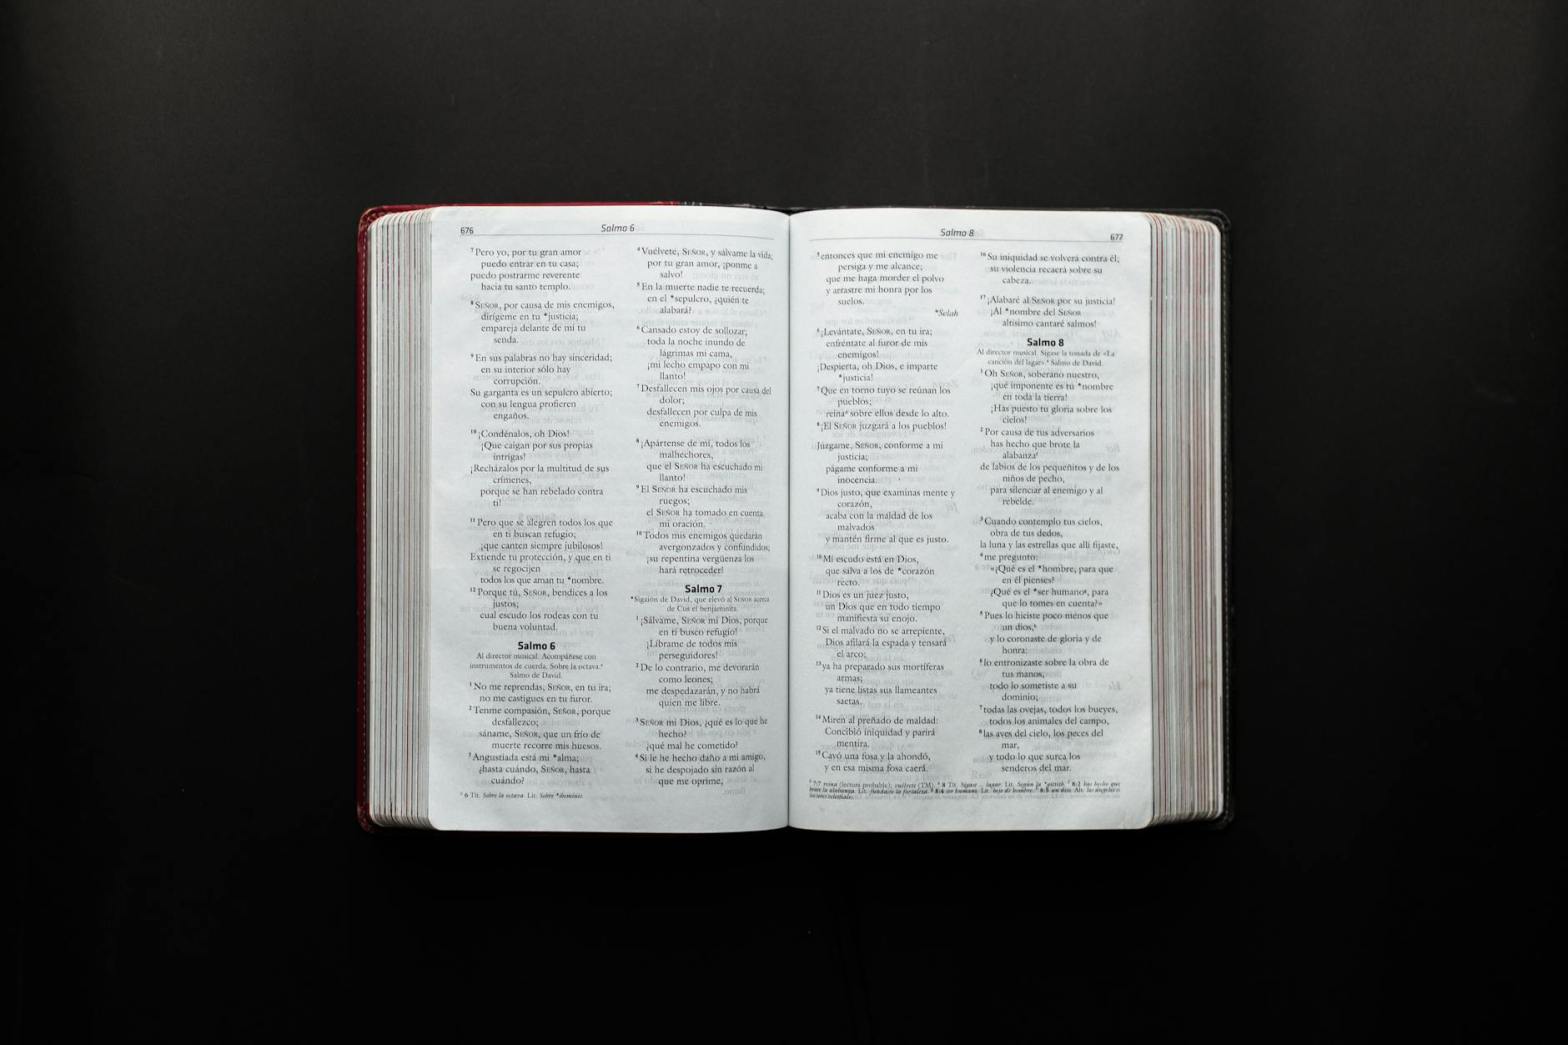 676
Salmo 6
7 Pero yo, por tu gran amor
puedo entrar en tu casa;
puedo postrarme reverente
hacia tu santo templo.
8 SEÑOR, por causa de mis enemigos,
dirígeme en tu *justicia;
empareja delante de mí tu
senda.
9 En sus palabras no hay sinceridad;
en su interior sólo hay
corrupción.
Su garganta es un sepulcro abierto;
con su lengua profieren
engaños.
10 ¡Condénalos, oh Dios!
¡Que caigan por sus propias
intrigas!
¡Recházalos por la multitud de sus
crímenes,
porque se han rebelado contra
ti!
11 Pero que se alegren todos los que
en ti buscan refugio;
¡que canten siempre jubilosos!
Extiende tu protección, y que en ti
se regocijen
todos los que aman tu *nombre.
12 Porque tú, SEÑOR, bendices a los
justos;
cual escudo los rodeas con tu
buena voluntad.
Salmo 6
Al director musical. Acompáñese con
instrumentos de cuerda. Sobre la octava.*
Salmo de David.
1 No me reprendas, SEÑOR, en tu ira;
no me castigues en tu furor.
2 Tenme compasión, SEÑOR, porque
desfallezco;
sáname, SEÑOR, que un frío de
muerte recorre mis huesos.
3 Angustiada está mi *alma;
¿hasta cuándo, SEÑOR, hasta
cuándo?
* 6 Tít. Sobre la octava. Lit. Sobre *sheminit.
4 Vuélvete, SEÑOR, y sálvame la vida;
por tu gran amor, ¡ponme a
salvo!
5 En la muerte nadie te recuerda;
en el *sepulcro, ¿quién te
alabará?
6 Cansado estoy de sollozar;
toda la noche inundo de
lágrimas mi cama,
¡mi lecho empapo con mi
llanto!
7 Desfallecen mis ojos por causa del
dolor;
desfallecen por culpa de mis
enemigos.
8 ¡Apártense de mí, todos los
malhechores,
que el SEÑOR ha escuchado mi
llanto!
9 El SEÑOR ha escuchado mis
ruegos;
el SEÑOR ha tomado en cuenta
mi oración.
10 Todos mis enemigos quedarán
avergonzados y confundidos;
¡su repentina vergüenza los
hará retroceder!
Salmo 7
*Sigaión de David, que elevó al SEÑOR acerca
de Cus el benjaminita.
1 ¡Sálvame, SEÑOR mi Dios, porque
en ti busco refugio!
¡Líbrame de todos mis
perseguidores!
2 De lo contrario, me devorarán
como leones;
me despedazarán, y no habrá
quien me libre.
3 SEÑOR mi Dios, ¿qué es lo que he
hecho?
¿qué mal he cometido?
4 Si le he hecho daño a mi amigo,
si he despojado sin razón al
que me oprime,
Salmo 8
677
5 entonces que mi enemigo me
persiga y me alcance;
que me haga morder el polvo
y arrastre mi honra por los
suelos.
*Selah
6 ¡Levántate, SEÑOR, en tu ira;
enfréntate al furor de mis
enemigos!
¡Despierta, oh Dios, e imparte
*justicia!
7 Que en torno tuyo se reúnan los
pueblos;
reina* sobre ellos desde lo alto.
8 ¡El SEÑOR juzgará a los pueblos!
Júzgame, SEÑOR, conforme a mi
justicia;
págame conforme a mi
inocencia.
9 Dios justo, que examinas mente y
corazón,
acaba con la maldad de los
malvados
y mantén firme al que es justo.
10 Mi escudo está en Dios,
que salva a los de *corazón
recto.
11 Dios es un juez justo,
un Dios que en todo tiempo
manifiesta su enojo.
12 Si el malvado no se arrepiente,
Dios afilará la espada y tensará
el arco;
13 ya ha preparado sus mortíferas
armas;
ya tiene listas sus llameantes
saetas.
14 Miren al preñado de maldad:
Concibió iniquidad y parirá
mentira.
15 Cavó una fosa y la ahondó,
y en esa misma fosa caerá.
16 Su iniquidad se volverá contra él;
su violencia recaerá sobre su
cabeza.
17 ¡Alabaré al SEÑOR por su justicia!
¡Al *nombre del SEÑOR
altísimo cantaré salmos!
Salmo 8
Al director musical. Sígase la tonada de «La
canción del lagar».* Salmo de David.
1 Oh SEÑOR, soberano nuestro,
¡qué imponente es tu *nombre
en toda la tierra!
¡Has puesto tu gloria sobre los
cielos!
2 Por causa de tus adversarios
has hecho que brote la
alabanza
de labios de los pequeñitos y de los
niños de pecho,
para silenciar al enemigo y al
rebelde.
3 Cuando contemplo tus cielos,
obra de tus dedos,
la luna y las estrellas que allí fijaste,
4 me pregunto:
«¿Qué es el *hombre, para que
en él pienses?
¿Qué es el *ser humano, para
que lo tomes en cuenta?»
5 Pues lo hiciste poco menos que
un dios,
y lo coronaste de gloria y de
honra:
6 lo entronizaste sobre la obra de
tus manos,
todo lo sometiste a su
dominio;
7 todas las ovejas, todos los bueyes,
todos los animales del campo,
8 las aves del cielo, los peces del
mar,
y todo lo que surca los
senderos del mar.
7:7 reina (lectura probable); vuélvete (TM). 8 Tít. Sígase ... lagar. Lit. Según la *gittith. 8:2 has hecho que
brote la alabanza. Lit. fundaste la fortaleza. 8:4 ser humano. Lit. hijo de hombre. 8:5 un dios. Alt. los ángeles o